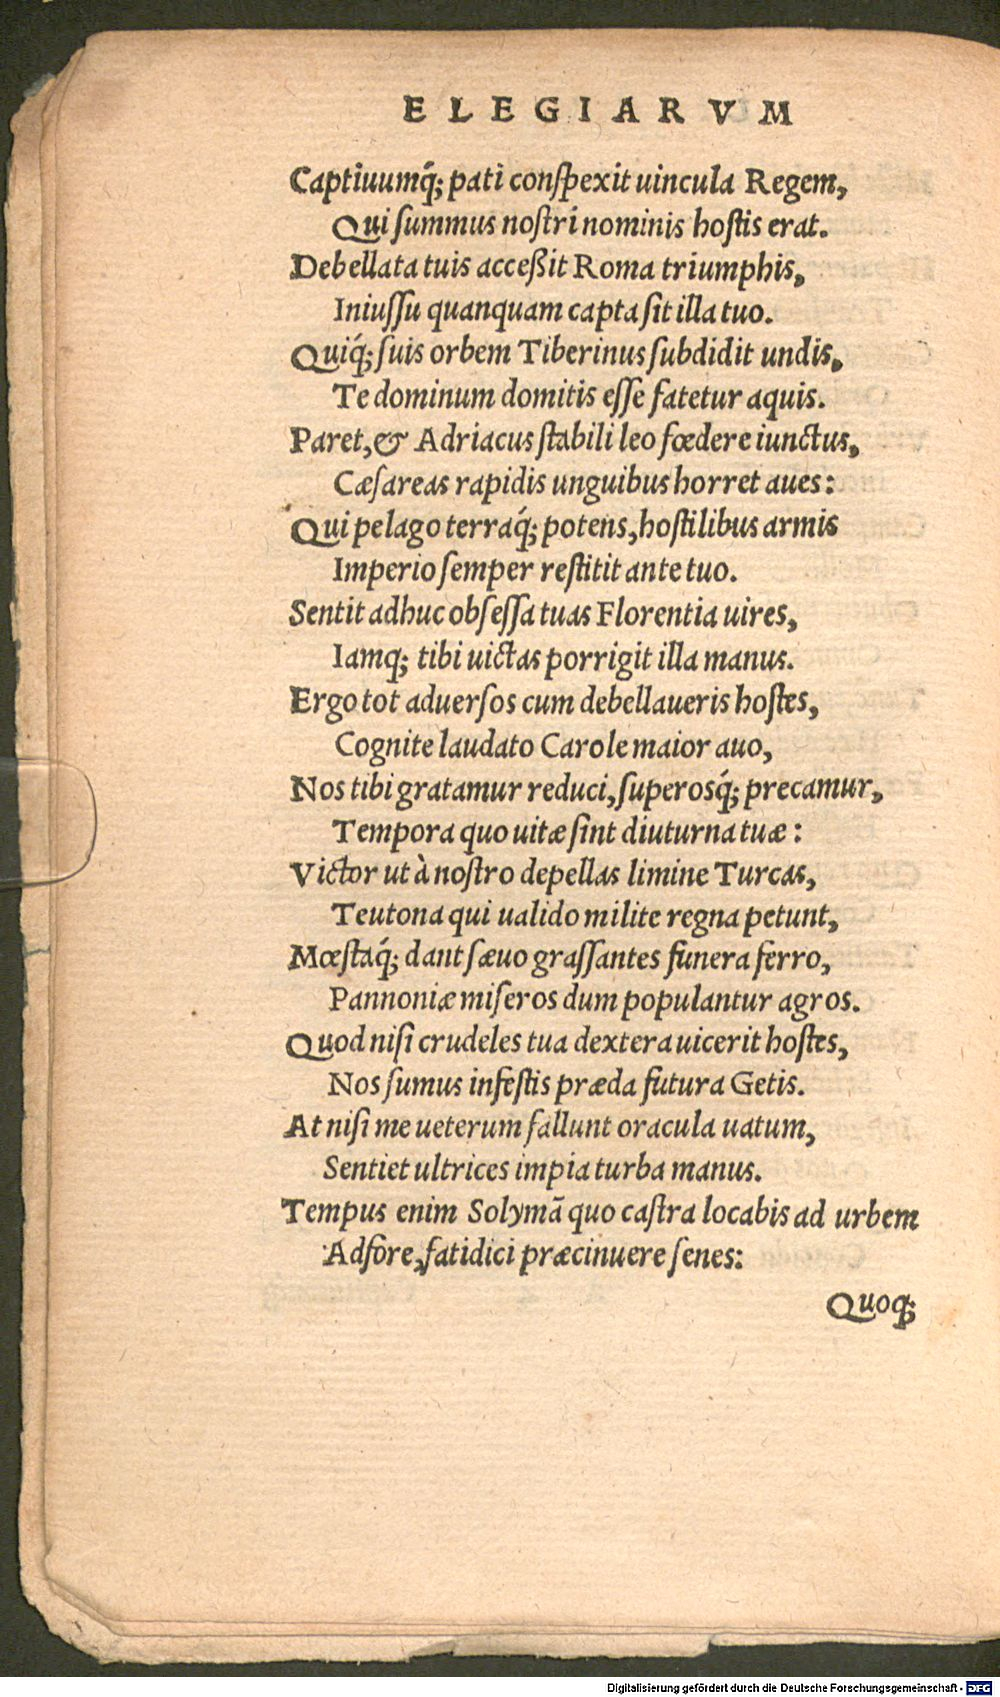 ELEGIARVM
Captiuumq́; pati conſpexit uincula Regem,
Qui ſummus noſtri nominis hoſtis erat.
Debellata tuis acceßit Roma triumphis,
Iniuſſu quanquam capta ſit illa tuo.
Quiq́; ſuis orbem Tiberinus ſubdidit undis,
Te dominum domitis eſſe fatetur aquis.
Paret, & Adriacus ſtabili leo fœdere iunctus,
Cæſareas rapidis unguibus horret aues:
Qui pelago terraq́; potens, hoſtilibus armis
Imperio ſemper reſtitit ante tuo.
Sentit adhuc obſeſſa tuas Florentia uires,
Iamq; tibi uictas porrigit illa manus.
Ergo tot aduerſos cum debellaueris hoſtes,
Cognite laudato Carole maior auo,
Nos tibi gratamur reduci, ſuperosq́; precamur,
Tempora quo uitæ ſint diuturna tuæ:
Victor ut à noſtro depellas limine Turcas,
Teutona qui ualido milite regna petunt,
Mœſtaq́; dant ſæuo graſſantes funera ferro,
Pannoniæ miſeros dum populantur agros.
Quod niſi crudeles tua dextera uicerit hoſtes,
Nos ſumus infeſtis præda futura Getis.
At niſi me ueterum fallunt oracula uatum,
Sentiet ultrices impia turba manus.
Tempus enim Solymã quo caſtra locabis ad urbem
Adfore, fatidici præcinuere ſenes:
Quoq;
Digitalisierung gefördert durch die Deutsche Forschungsgemeinschaft - DFG